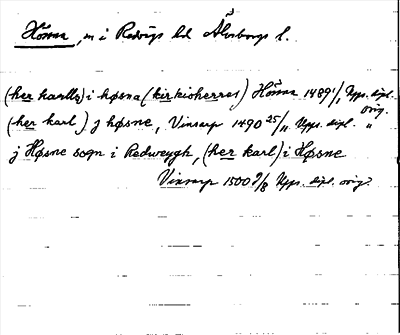 Hössna, sn i Redvägs hd Älvsborgs l.
(her karlls) i høsna (kirkioherres) Hössna 1489 1/1 Upps. dipl. orig.
(her karl) j høsne, Vinsarp 1490 25/11 Upps. dipl. "
j Høsne sogn i Redweygh, (her karl) i Høsne
Vinsarp 1500 9/8 Upps. dipl. orig.